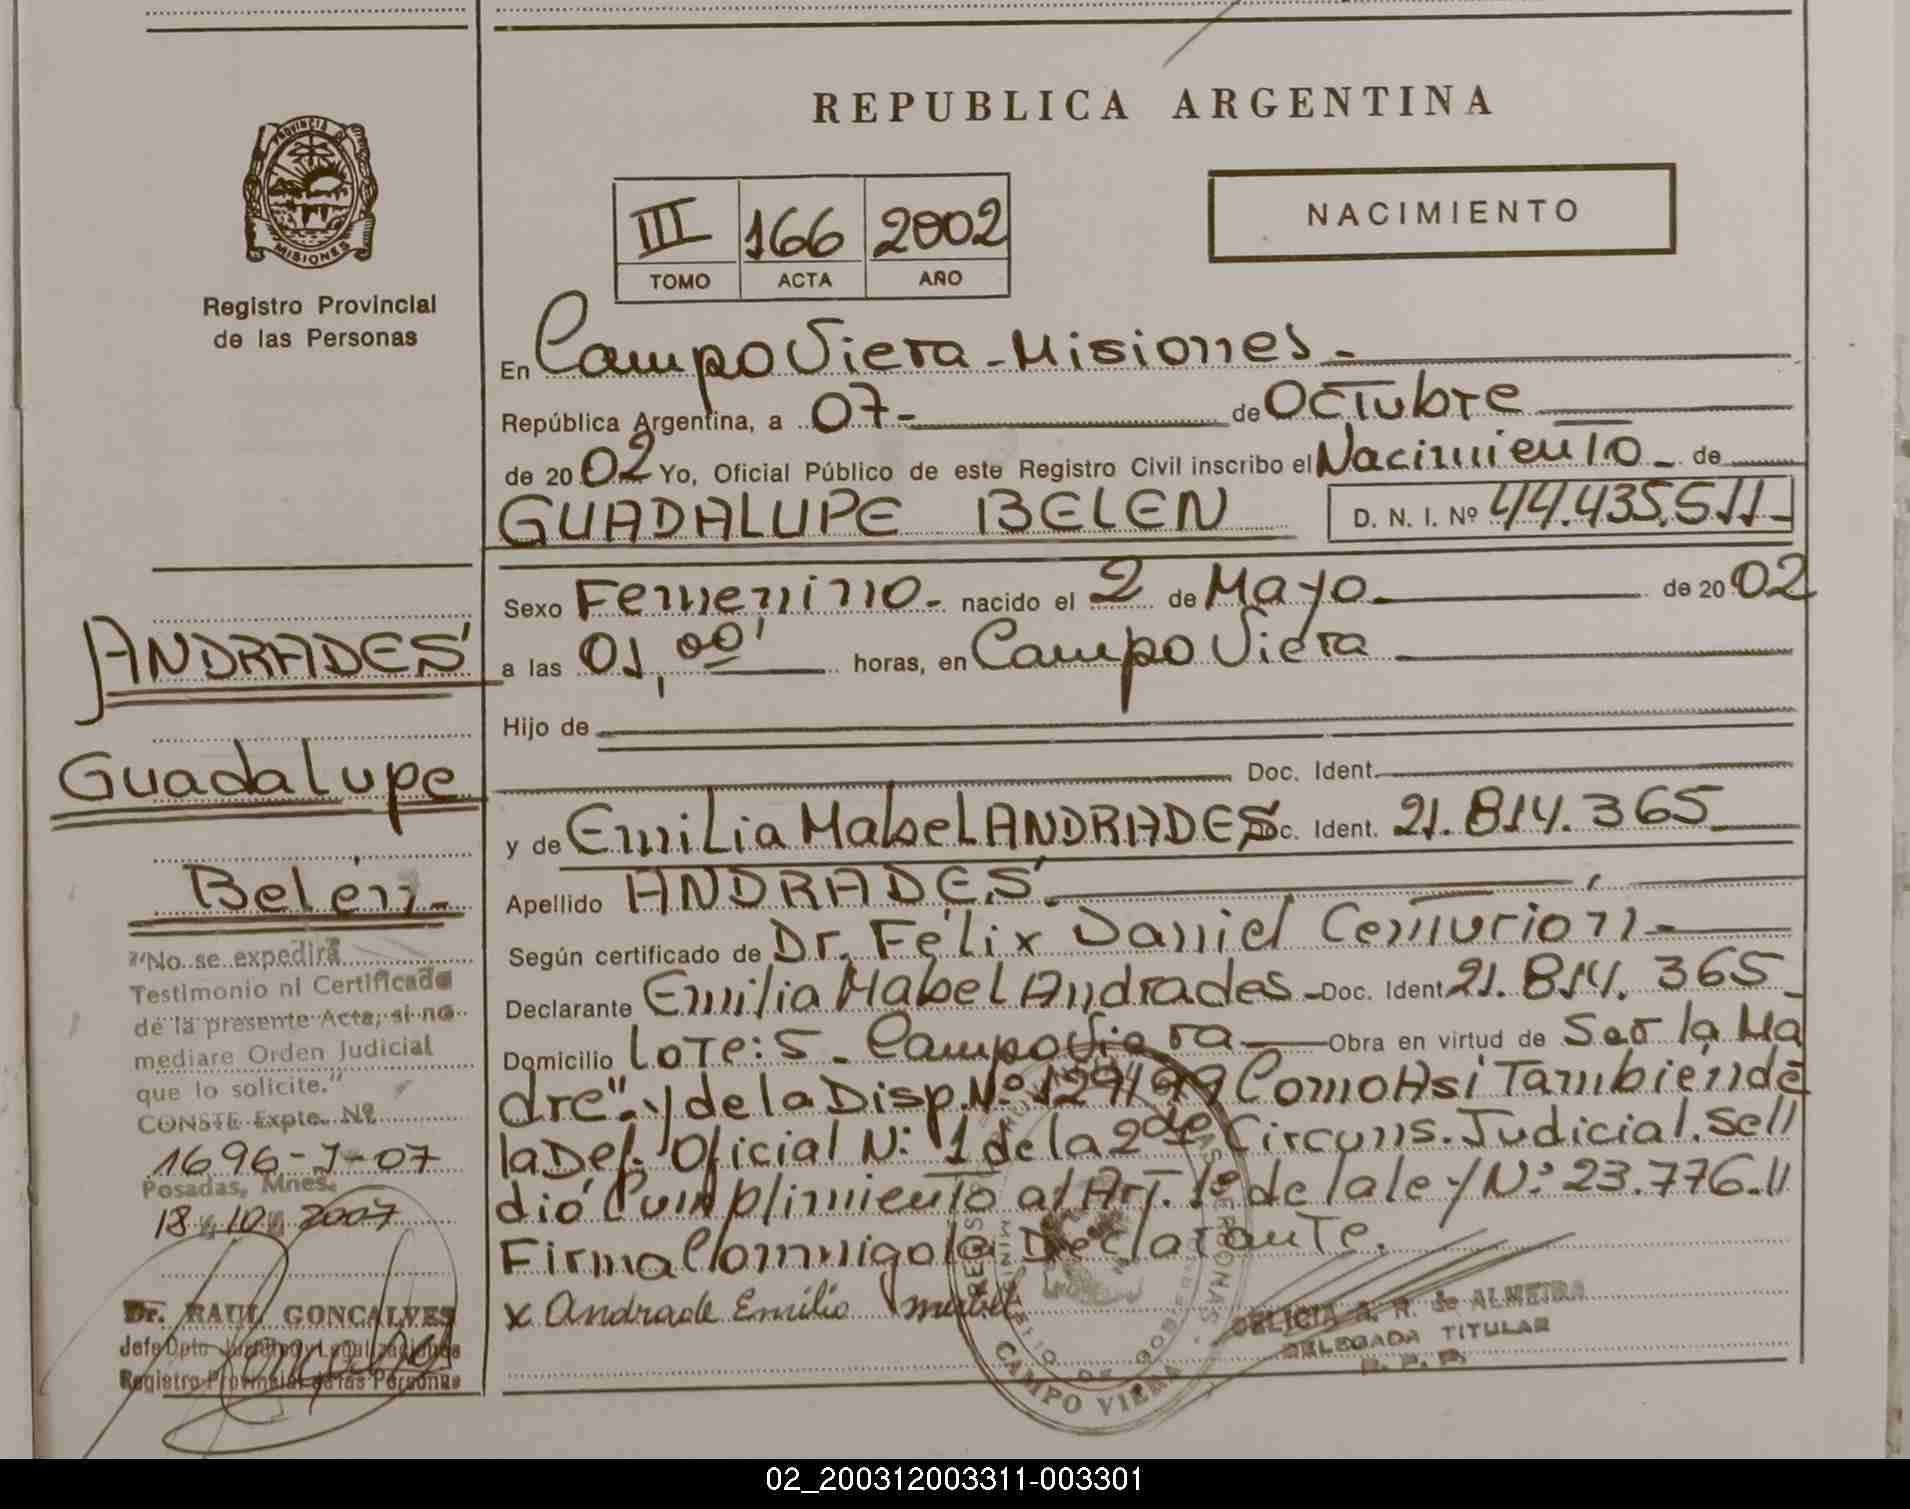 REPUBLICA ARGENTINA
PROVINCIA DE
MISIONES
Registro Provincial
de las Personas
III 166 2002
TOMO ACTA AÑO
NACIMIENTO
En Campo Viera - Misiones -
República Argentina, a 07- de Octubre
de 20 02 Yo, Oficial Público de este Registro Civil inscribo el Nacimiento - de
GUADALUPE BELEN D. N. I. Nº 44.435.511-
Sexo Femenino - nacido el 2 de Mayo de 20 02
a las 01,00' horas, en Campo Viera
Hijo de
Doc. Ident.
y de Emilia Mabel ANDRADES Doc. Ident. 21.814.365
Apellido ANDRADES
Según certificado de Dr. Félix Daniel Centurion -
Declarante Emilia Mabel Andrades - Doc. Ident 21.814.365
Domicilio Lote: 5 - Campo Viera Obra en virtud de Ser la Ma
dre". y de la Disp. Nº 129/99 Como Asi También de
la Def. Oficial N: 1 de la 2da Circuns. Judicial. Se ll
dió Cumplimiento al Art. 1º de la ley Nº 23.776.ll
Firma Conmigo la Declarante.
x Andrade Emilia mabel
DELICIA A. R. de ALMEIRA
DELEGADA TITULAR
R. P. P.
CAMPO VIERA
ANDRADES
Guadalupe
Belén -
"No se expedirá
Testimonio ni Certificado
de la presente Acta, si no
mediare Orden Judicial
que lo solicite."
CONSTE Expte. Nº
1696-J-07
Posadas, Mnes.
18 10 2007
Dr. RAUL GONCALVES
Jefe Dpto Jurídico y Legalizaciones
Registro Provincial de las Personas
02_200312003311-003301